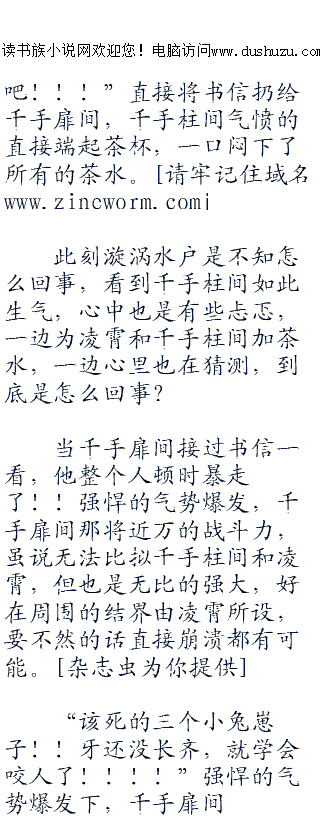 读书族小说网欢迎您！电脑访问www.dushuzu.com
吧！！！”直接将书信扔给
千手扉间，千手柱间气愤的
直接端起茶杯，一口闷下了
所有的茶水。[请牢记住域名
www.zincworm.com|
此刻漩涡水户是不知怎
么回事，看到千手柱间如此
生气，心中也是有些忐忑，
一边为凌霄和千手柱间加茶
水，一边心里也在猜测，到
底是怎么回事？
当千手扉间接过书信一
看，他整个人顿时暴走
了！！强悍的气势爆发，千
手扉间那将近万的战斗力，
虽说无法比拟千手柱间和凌
霄，但也是无比的强大，好
在周围的结界由凌霄所设，
要不然的话直接崩溃都有可
能。[杂志虫为你提供]
“该死的三个小兔崽
子！！牙还没长齐，就学会
咬人了！！！！”强悍的气
势爆发下，千手扉间